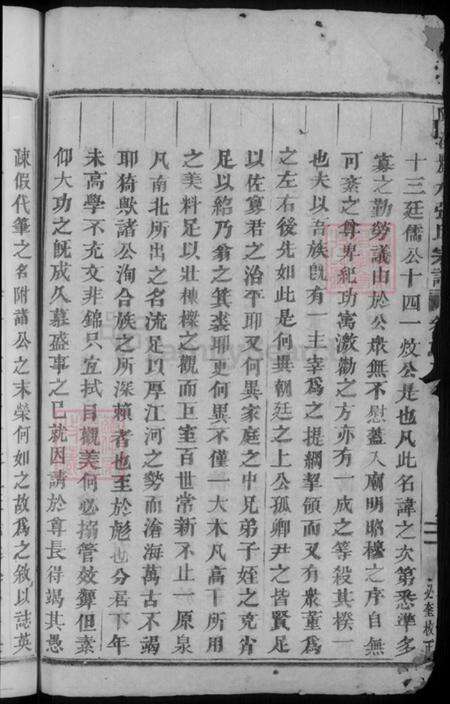 十三廷儒公十四一炇公是也凡此名諱之次第悉準多
寡之勤勞議由於公衆無不慰蓋入廟明昭穆之序自無
可紊之尊卑紀功寓激勸之方亦有一成之等殺其揆一
也夫以吾族旣有一主宰爲之提綱挈領而又有衆董爲
之左右後先如此是何異朝廷之上公孤卿尹之皆賢足
以佐寡君之治平耶又何異家庭之中兄弟子姪之克肖
足以紹乃翁之箕裘耶更何異不僅一大木凡高下所用
之美料足以壯棟樑之觀而巨室百世常新不止一原泉
凡南北所出之名流足以厚江河之勢而滄海萬古不竭
耶猗歟諸公洵合族之所深賴者也至於彪也分居下年
未高學不充文非錦只宜拭目觀美何必搦管效顰但素
仰大功之旣成久慕盛事之已就因請於尊長得竭其愚
踈假代筆之名附諸公之末榮何如之故爲之敘以誌英
張氏宗譜
必奎校正